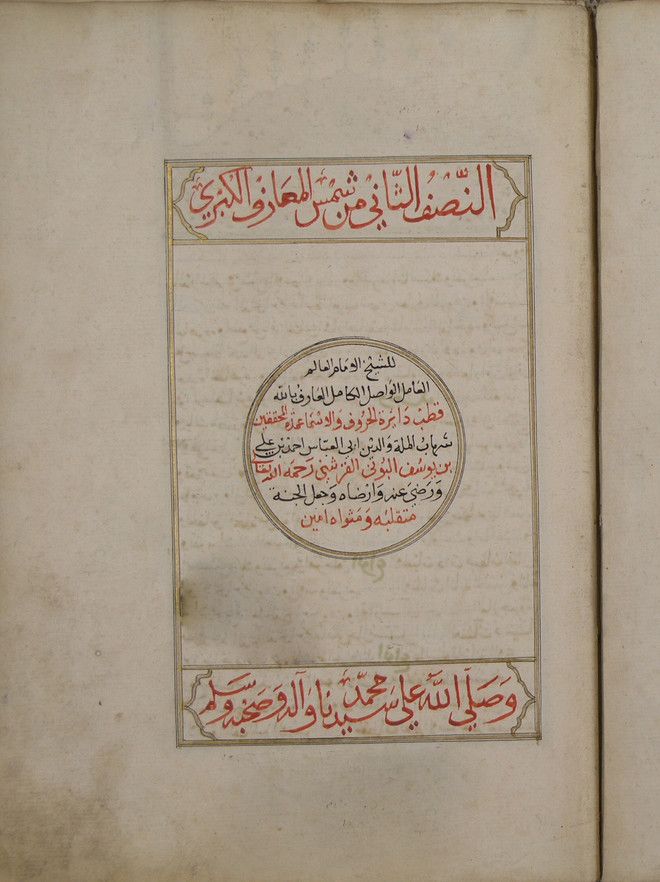 النّصف الثّاني من شمس المعارف الكبرى
للشيخ الامام العالم
العامل الواصل الكامل العارف بالله
قطب دايرة الحروف والاسما عمدة المحققين
شهاب الملة والدين ابي العباس احمد بن علي
بن يوسف البوني القرشي رحمه الله تعالى
ورضي عنه وارضاه وجعل الجنة
متقلبه ومثواه امين
وصلى الله على سيدنا محمد وآله وصحبه وسلم